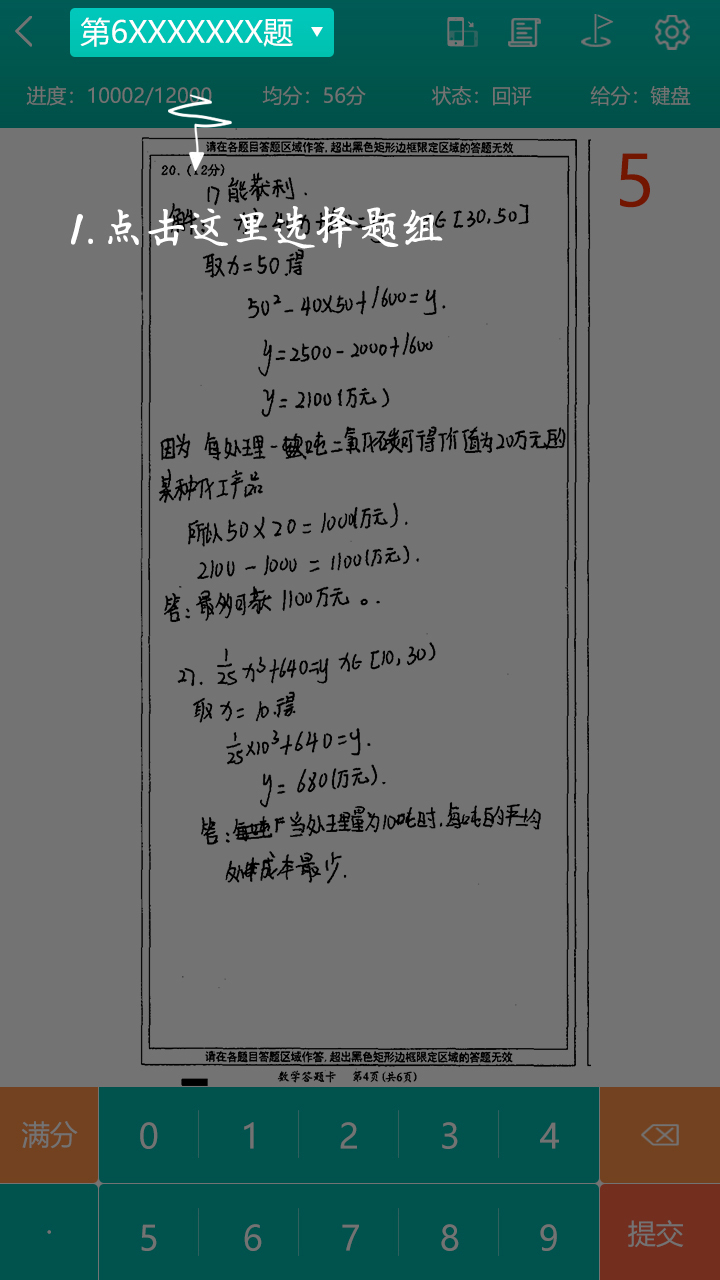 第6XXXXXXX题
进度：10002/12000 均分：56分 状态：回评 给分：键盘
请在各题目答题区域作答，超出黑色矩形边框限定区域的答题无效
5
20.（12分）
能获利.
1.点击这里选择题组
∈[30,50]
取x=50得
50²-40×50+1600=y.
y=2500-2000+1600
y=2100(万元)
因为 每处理一吨二氧化碳可得价值为20万元的
某种化工产品
所以50×20=1000(万元).
2100-1000=1100(万元).
答:最多可获1100万元。.
27. 1/25 x³+640=y x∈[10,30)
取x=10.得
1/25×10³+640=y.
y=680(万元).
答: 当处理量为10吨时.每吨的平均
成本最少.
请在各题目答题区域作答，超出黑色矩形边框限定区域的答题无效
数学答题卡 第4页(共6页)
满分 0 1 2 3 4
. 5 6 7 8 9 提交